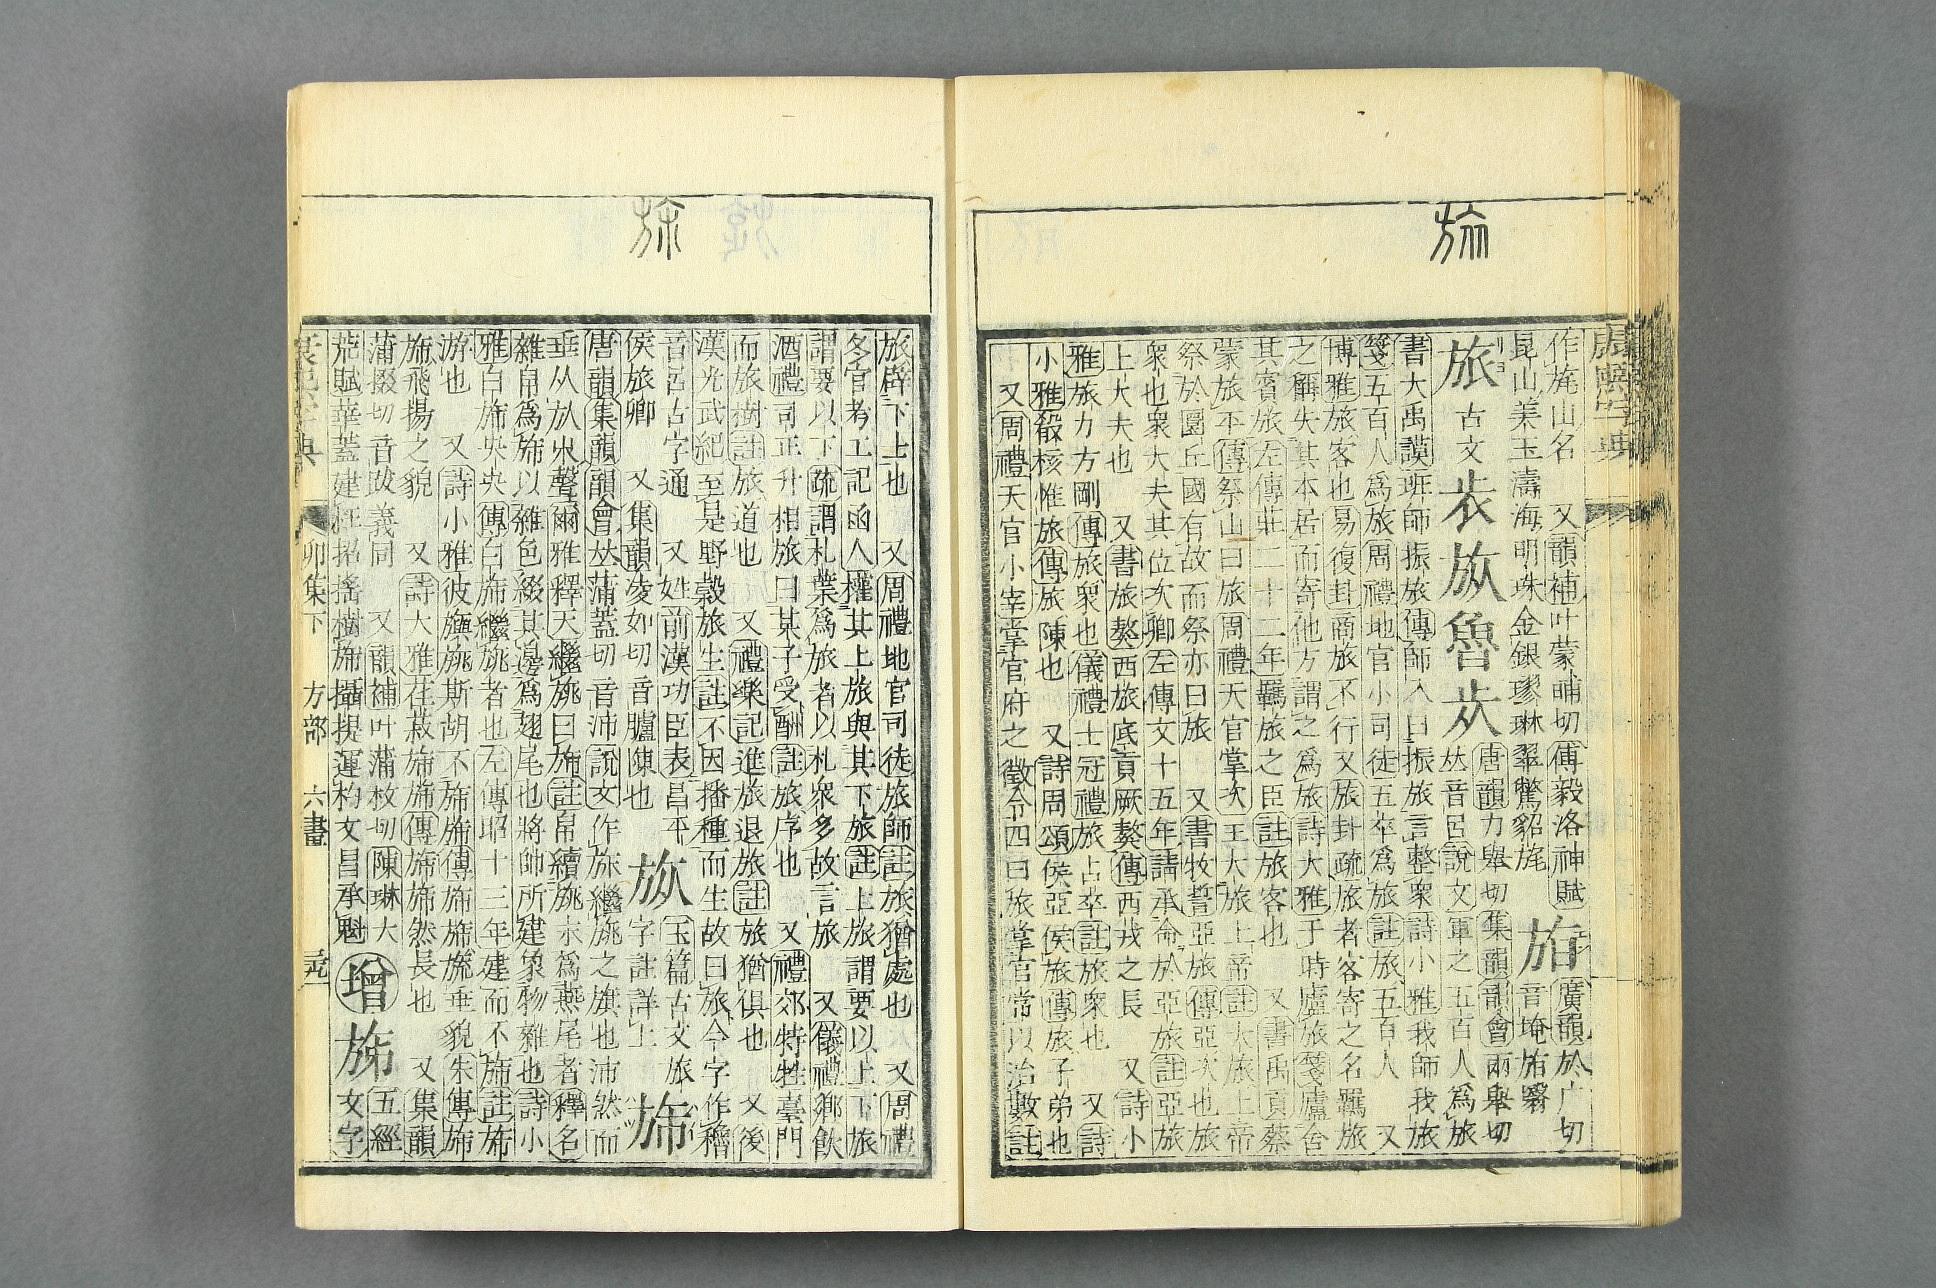 康熙字典
作旄山名　又韻補叶蒙晡切傅毅洛神賦
昆山美玉濤海明珠金銀璆琳翠鷩貂旄
旃廣韻於广切
音埯旃翳
旅古文
唐韻力舉切集韻韻會兩舉切
𠀤音呂說文軍之五百人爲旅
書大禹謨班師振旅傳師入曰振旅言整衆詩小雅我師我旅
箋五百人爲旅周禮地官小司徒五卒爲旅註旅五百人　又
博雅旅客也易復卦商旅不行又旅卦疏旅者客寄之名羈旅
之稱失其本居而寄他方謂之爲旅詩大雅于時廬旅箋廬舍
其賓旅左傳莊二十二年羈旅之臣註旅客也　又書禹貢蔡
蒙旅平傳祭山曰旅周禮天官掌次王大旅上帝註大旅上帝
祭於圜丘國有故而祭亦曰旅　又書牧誓亞旅傳亞次也旅
衆也衆大夫其位次卿左傳文十五年請承命於亞旅註亞旅
上大夫也　又書旅獒西旅底貢厥獒傳西戎之長　又詩小
雅旅力方剛傳旅衆也儀禮士冠禮旅占卒註旅衆也　又詩
小雅殽核惟旅傳旅陳也　又詩周頌侯亞侯旅傳旅子弟也
又周禮天官小宰掌官府之徵令四曰旅掌官常以治數註
旅辟下士也　又周禮地官司徒旅師註旅猶處也　又周禮
冬官考工記函人權其上旅與其下旅註上旅謂要以上下旅
謂要以下疏謂札葉爲旅者以札衆多故言旅　又儀禮鄉飮
酒禮司正升相旅曰某子受酬註旅序也　又禮郊特牲臺門
而旅樹註旅道也　又禮樂記進旅退旅註旅猶俱也　又後
漢光武紀至是野穀旅生註不因播種而生故曰旅今字作穭
音呂古字通　又姓前漢功臣表昌平
侯旅卿　又集韻凌如切音臚陳也
玉篇古文旅
字註詳上
旆
唐韻集韻韻會𠀤蒲蓋切音沛說文作旆繼旐之旗也沛然而
垂从㫃𣎵聲爾雅釋天繼旐曰旆註帛續旐末爲燕尾者釋名
雜帛爲旆以雜色綴其邊爲翅尾也將帥所建象物雜也詩小
雅白旆央央傳白旆繼旐者也左傳昭十三年建而不旆註旆
游也　又詩小雅彼旟旐斯胡不旆旆傳旆旆旒垂貌朱傳旆
旆飛揚之貌　又詩大雅荏菽旆旆傳旆旆然長也　又集韻
蒲撥切音跋義同　又韻補叶蒲枚切陳琳大
荒賦華蓋建枉招搖樹旆攝提運杓文昌承魁
增
五經
文字
卯集下　方部　六畫